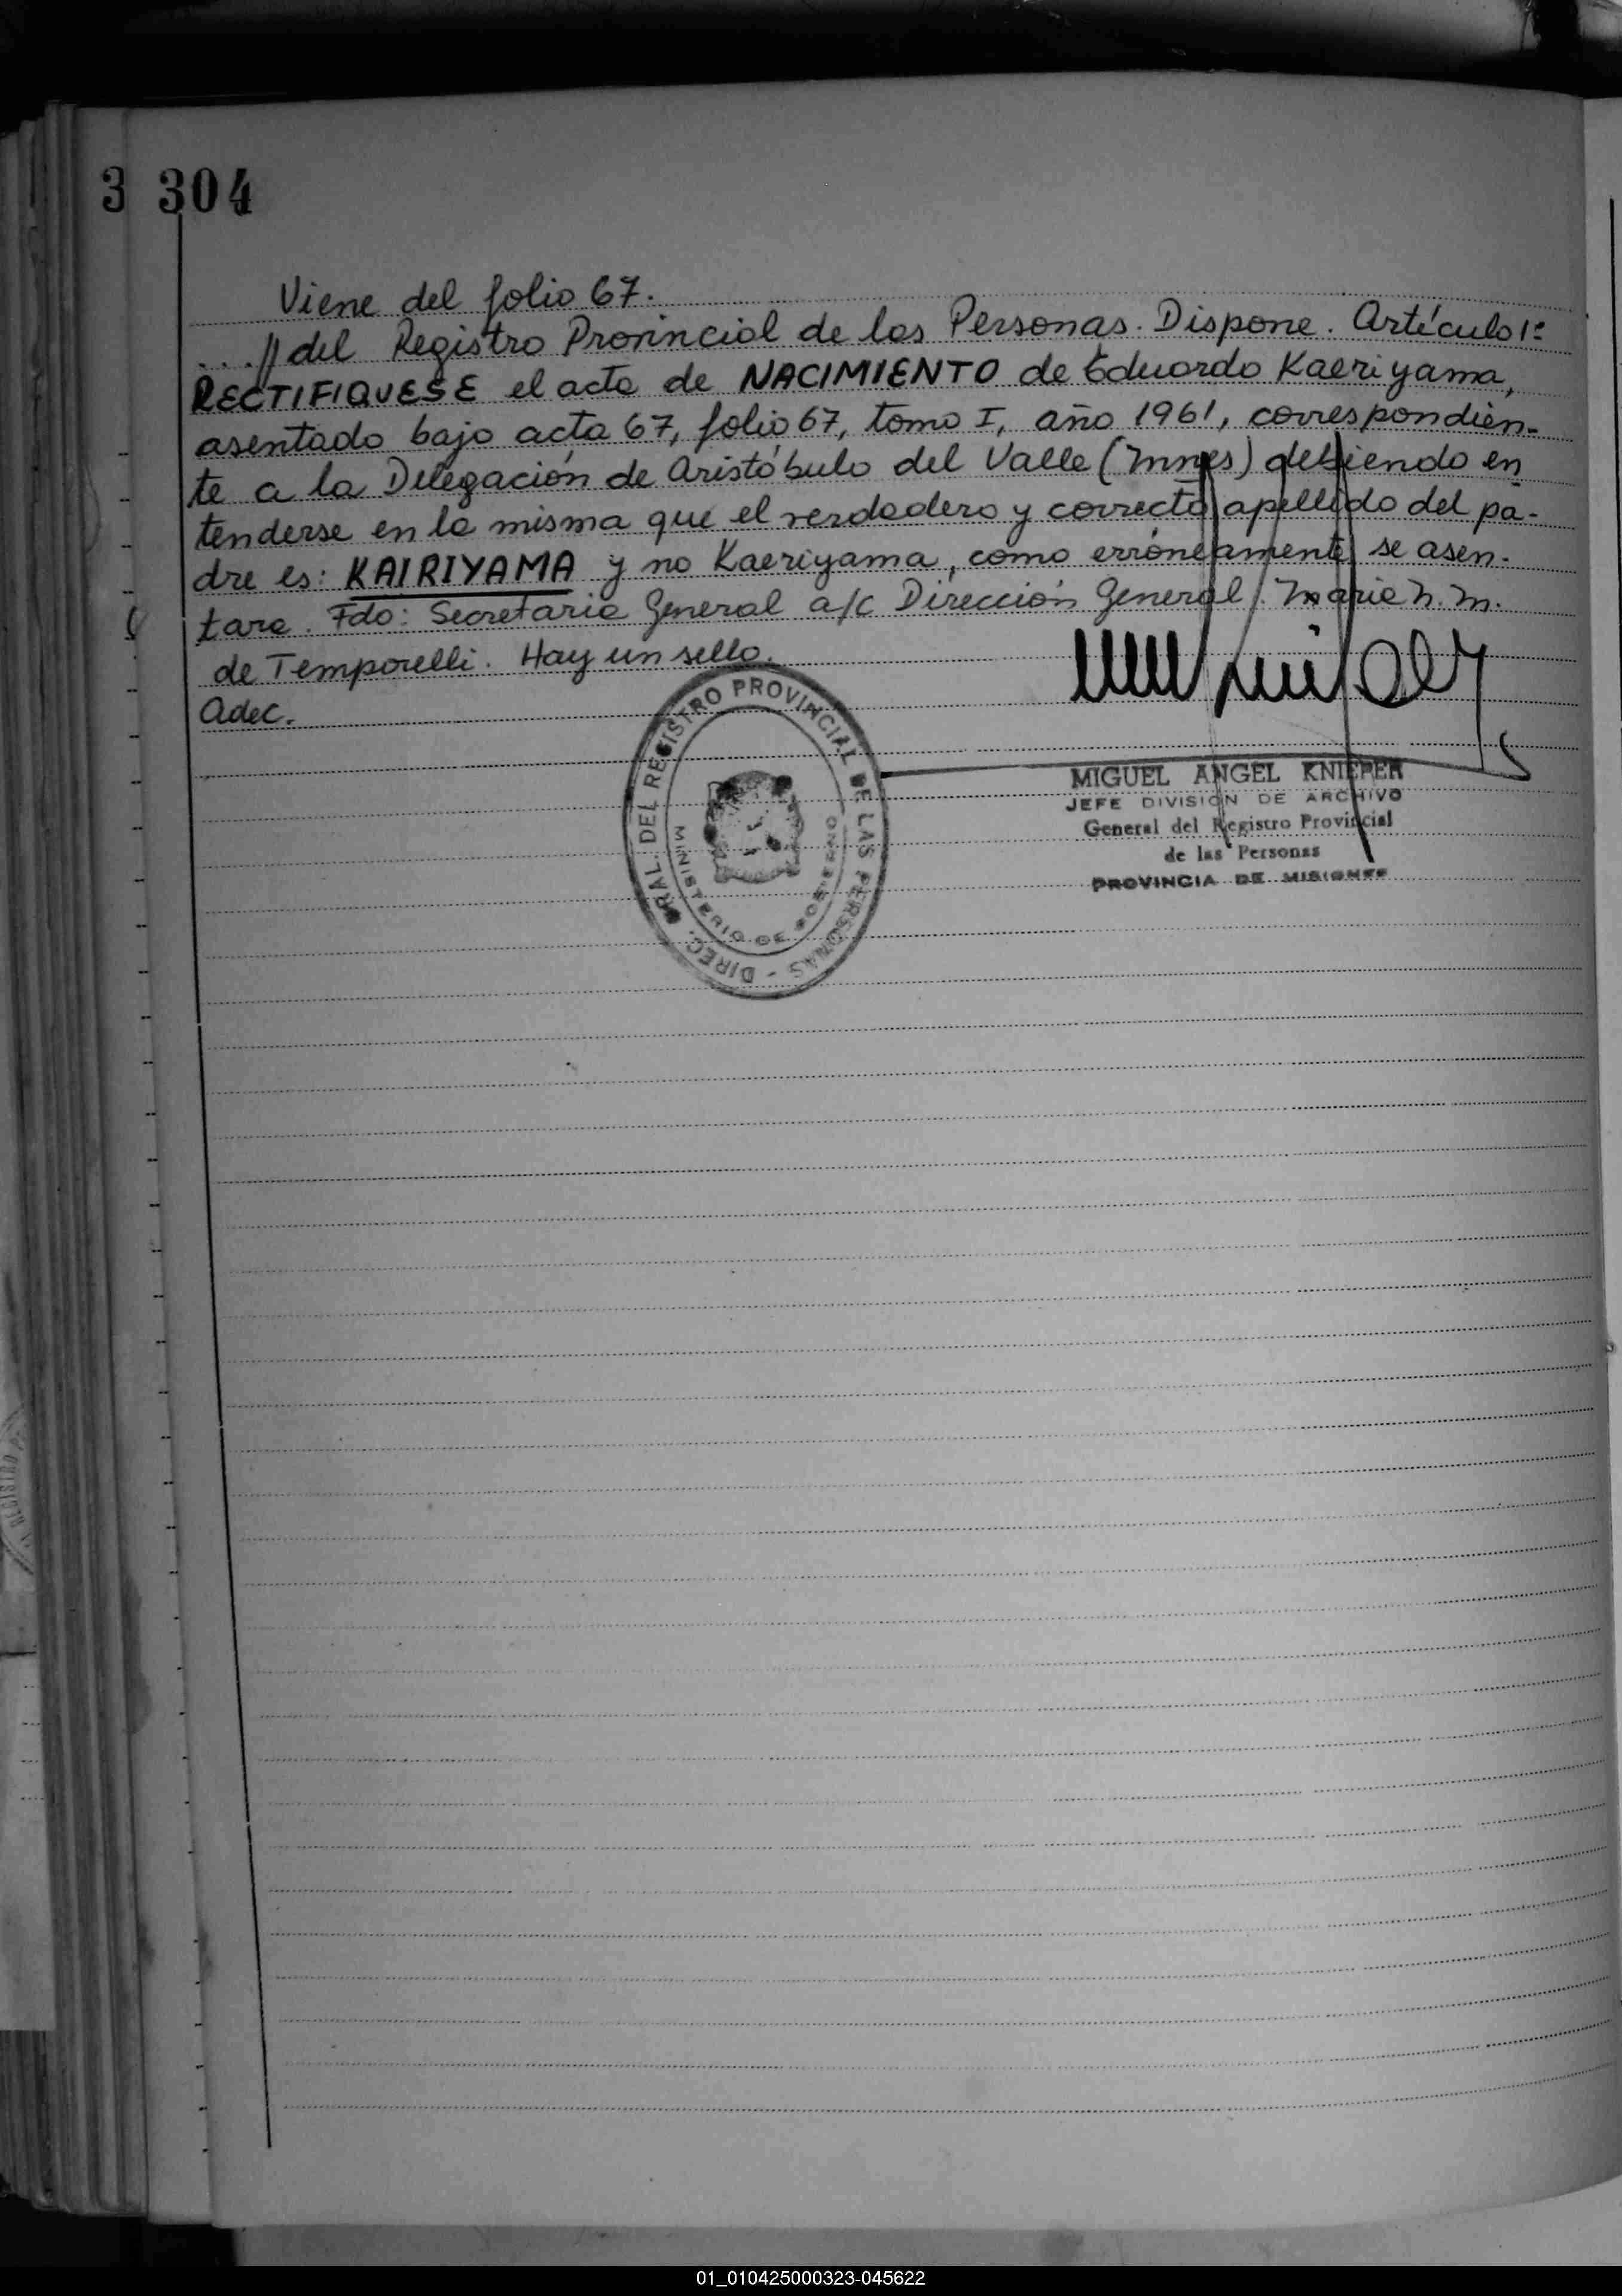 3 304
Viene del folio 67.
...// del Registro Provincial de las Personas. Dispone. Artículo 1º:
RECTIFIQUESE el acta de NACIMIENTO de Eduardo Kaeriyama,
asentado bajo acta 67, folio 67, tomo I, año 1961, correspondien-
te a la Delegación de Aristóbulo del Valle (Mnes) debiendo en
tenderse en la misma que el verdadero y correcto apellido del pa-
dre es: KAIRIYAMA y no Kaeriyama, como erróneamente se asen-
tara. Fdo: Secretaria General a/c Dirección General. Maria N. M.
de Temporelli. Hay un sello.
Adec.
DIREC. GRAL. DEL REGISTRO PROVINCIAL DE LAS PERSONAS -
MINISTERIO DE GOBIERNO
MIGUEL ANGEL KNIEPER
JEFE DIVISION DE ARCHIVO
General del Registro Provincial
de las Personas
PROVINCIA DE MISIONES
01_010425000323-045622